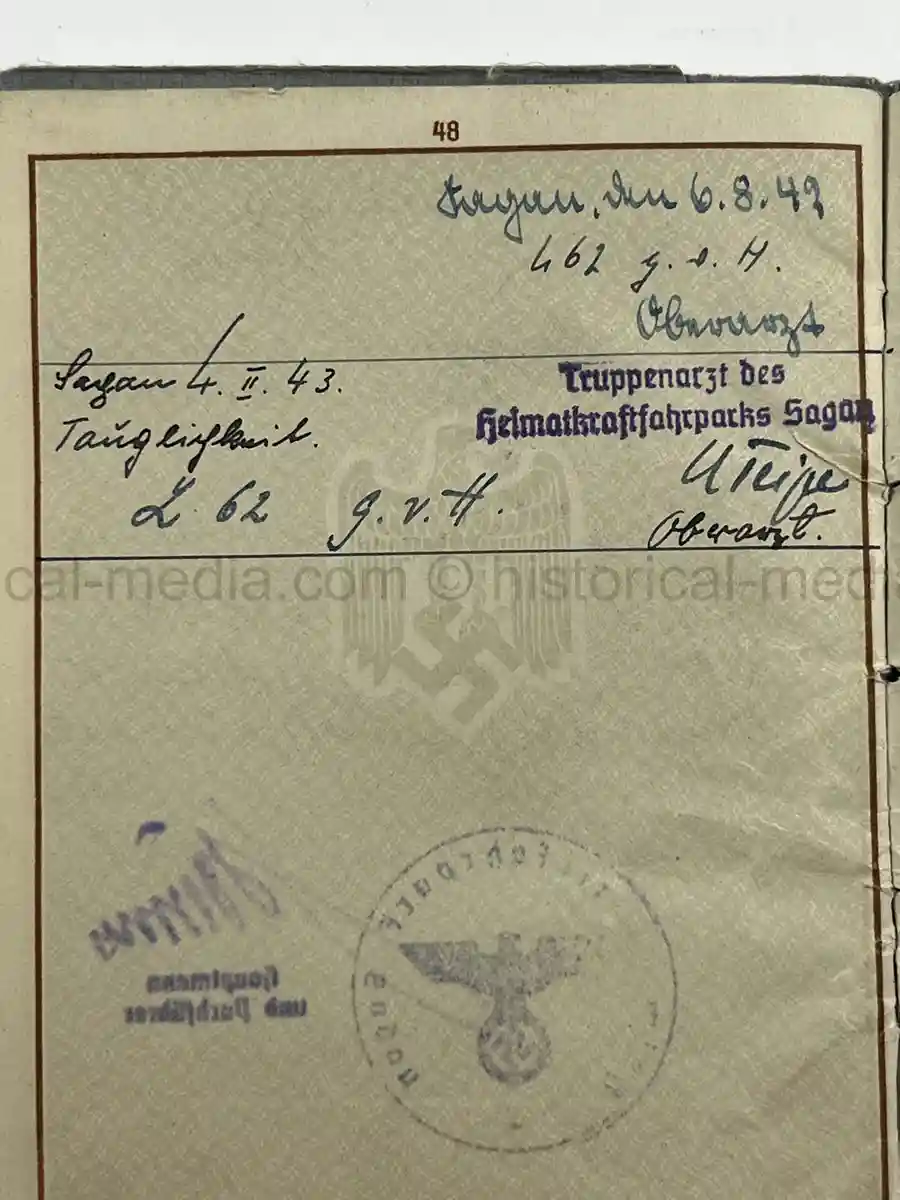 48
Sagan, den 6.8.42
L 62 g.v.H.
Oberarzt
Sagan 4. II. 43.
Tauglichkeit.
L 62 g.v.H.
Truppenarzt des
Heimatkraftfahrparks Sagan
Oberarzt.
cal-media.com © historical-media
Hauptmann
und Parkführer